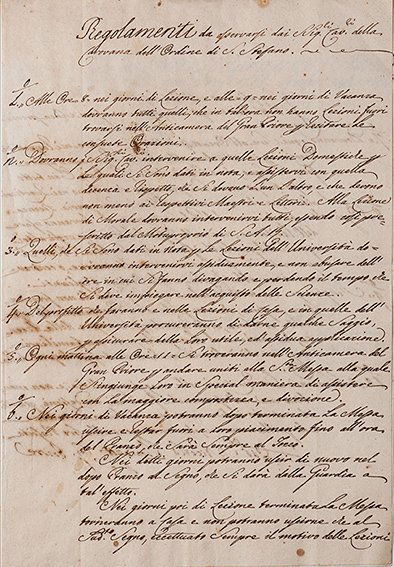 Regolamenti da osservarsi dai Sig.ri Cav.ri della
Carovana dell'Ordine di S. Stefano.
1.o Alle Ore 8. nei giorni di Lezione, e alle 9. nei giorni di Vacanza
dovranno tutti quelli, che in tal'ora non hanno Lezioni fuori
trovarsi nell'Anticamera del Gran Priore per recitare le
consuete Orazioni.
2.o Dovranno i Sig.ri Cav.ri intervenire a quelle Lezioni Domestiche per
le quali si sono dati in nota, e assistervi con quella
decenza e rispetto, che si devono l'un l'altro e che devono
non meno ai rispettivi Maestri e Lettori. Alla Lezione
di Morale dovranno intervenirvi tutti, essendo così pre-
scritto dal Motuproprio di S. A. R.
3.o Quelli, che si sono dati in Nota per le Lezioni dell'Università do-
vranno intervenirvi assiduamente, e non abusare dell'
ore in cui si fanno divagando e perdendo il tempo che
si deve impiegare nell'acquisto delle Scienze.
4.o Del profitto che faranno e nelle Lezioni di Casa, e in quelle dell'
Università procureranno di darne qualche Saggio,
per assicurare della loro utile, ed assidua applicazione.
5.o Ogni mattina alle Ore 11 si troveranno nell'Anticamera del
Gran Priore per andare uniti alla S.ta Messa alla quale
s'ingiunge loro in special maniera di assistere
con la maggiore compostezza, e divozione.
6.o Nei giorni di Vacanza potranno dopo terminata la Messa
uscire e restar fuori a loro piacimento fino all'ora
del Pranzo, che sarà sempre al Tocco.
Nei detti giorni potranno uscir di nuovo nel
dopo Pranzo al Segno, che si darà dalla Guardia a
tal'effetto.
Nei giorni poi di Lezione terminata la Messa
torneranno a Casa e non potranno uscirne che al
Sud.to Segno, eccettuato sempre il motivo delle Lezioni